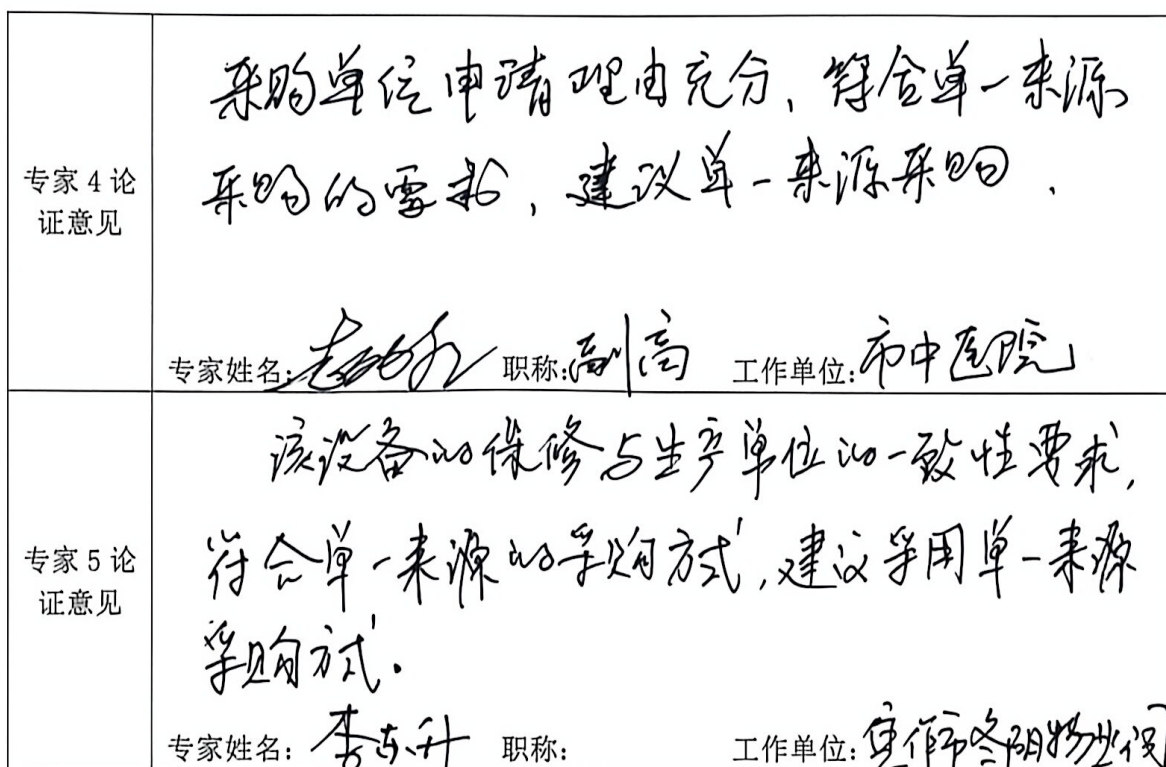 专家4论
证意见
采购单位申请理由充分，符合单一来源
采购的要求，建议单一来源采购．
专家姓名： 职称：副高 工作单位：市中医院
专家5论
证意见
该设备的保修与生产单位的一致性要求，
符合单一来源的采购方式，建议采用单一来源
采购方式．
专家姓名：李东升 职称： 工作单位：